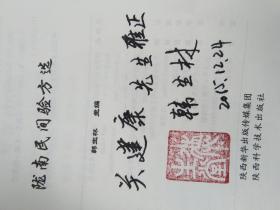 陇南民间验方选
韩生林 主编
关建康先生雅正
韩生林
2015.12.24
陕西新华出版传媒集团
陕西科学技术出版社